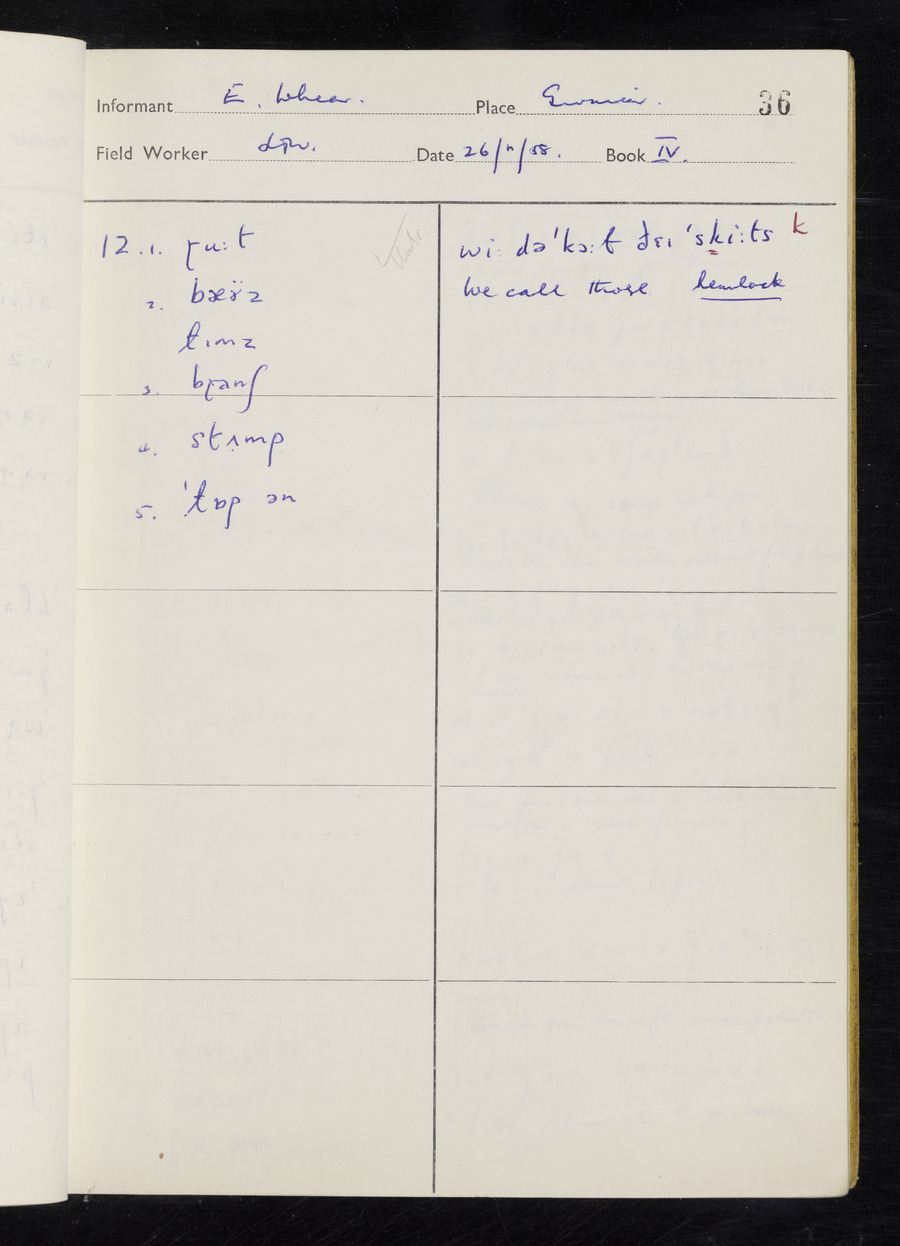 Informant E. Whear. Place 36
Field Worker Date 26/11/58. Book IV.
12.1. ɽu:t
2. bæɚ̈z
tɪmz
3. bɽanʃ
4. stʌmp
5. ˈtɒp ən
wi: dəˈkɔ:ɫ ðɛɪ ˈski:ts k
We call those hemlock